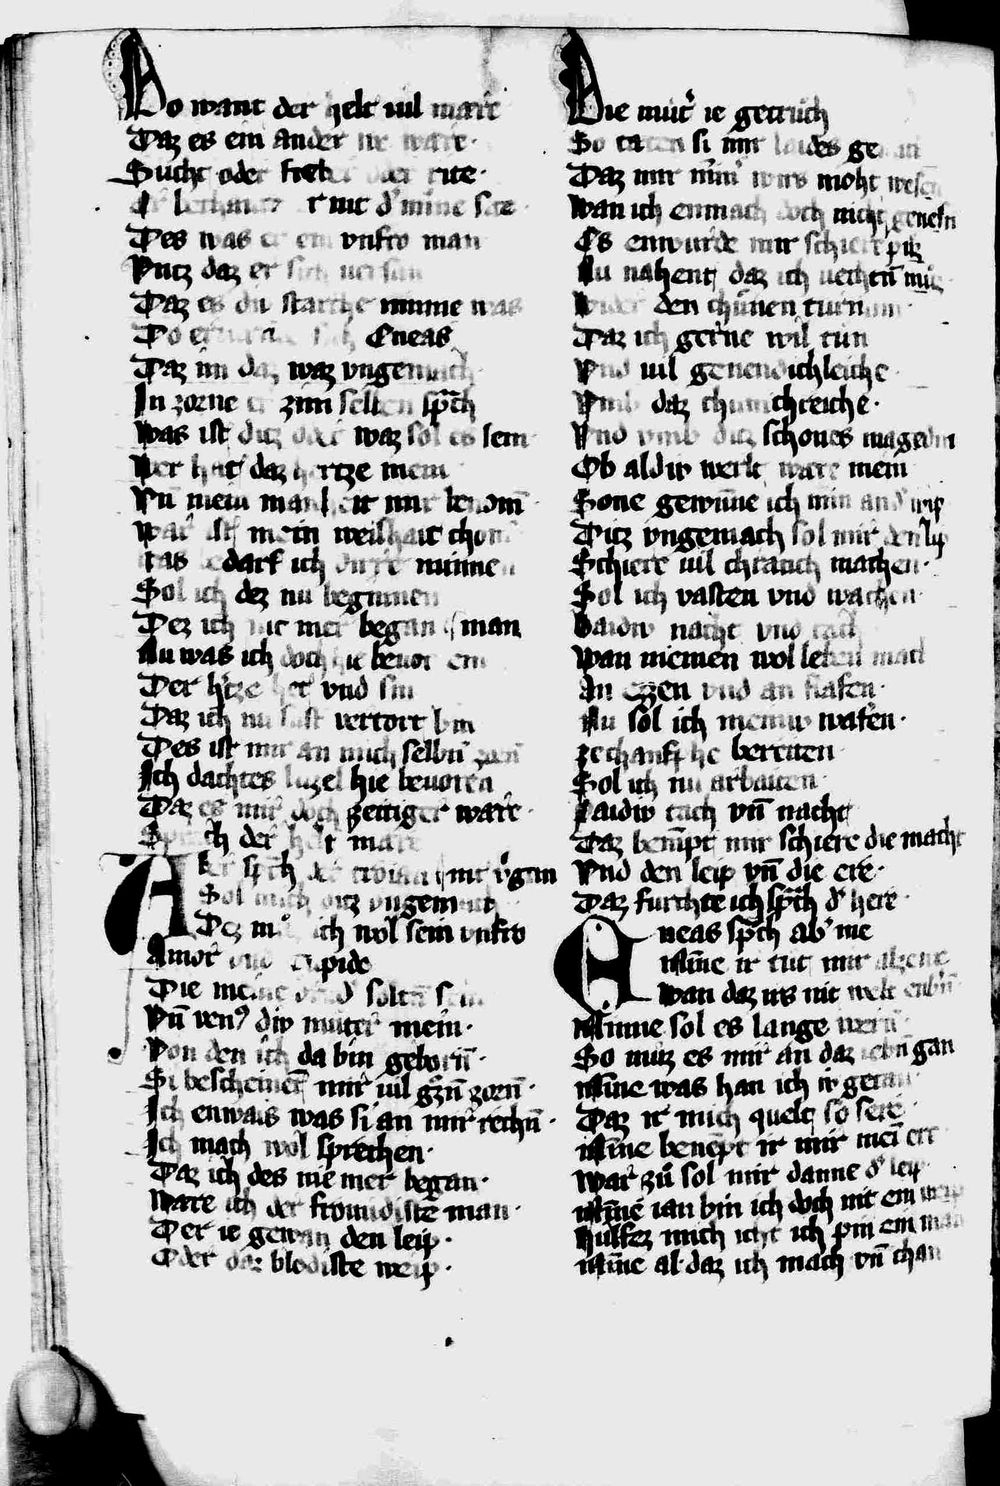 Do want der helt vil mare
Daz es ein ander ne ware.
Sucht oder oder rite.
nit d' minne site
Des was er ein vnfro man
Vntz daz er sich versan
Daz es div starche minne was
Do Eneas
Daz im daz waz vngemach
In zorne er zim selben sp̄ch
Was ist ditz oder waz sol es sein
Wer hat daz hertze mein
Vn̄ mein manheit mir benom̄
War ist mein weishait chom
was bedarf ich dirre minnen
Sol ich dez nu beginnen
Dez ich nie mer began man
Nu was ich doch hie bevor ein
Der hitze het vnd sin
Daz ich nu sust vertort bin
Des ist mir an mich selbn̄ zorn
Ich dachtes luzel hie bevoren
Daz es mir doch zeitiger ware.
Sprach der helt mare
Aber sp̄ch der troian mir
Sol mich ditz vngemach
Dez mů ich wol sein vnfro
Amor vnd Cupido
Die meine solten sein
Vn̄ ven9 div mutter mein.
Von den ich da bin geborn̄.
Si bescheinen mir vil zorn̄.
Ich enwais was si an mir rechn̄.
Ich mach wol sprechen.
Daz ich des nie mer began.
Ware ich der fromdiste man.
Der ie gewan den leip.
Oder daz blodiste weip.
Die můt' ie getruch
So taten si mir laides genuch
Daz mir nim' wirs moht wesen
Wan ich enmach doch nicht genesn
Es enwurde mir schiere půz
Nu nahent daz ich vechtn̄ můz
Wider den chůnen turnum
Daz ich gerne wil tůn
Vnd vil genendichleiche.
Vmb daz chunichreiche.
Vnd vmb ditz schones magedin
Ob aldiv werlt ware mein
Sone gewn̄ne ich min and' wip
Ditz vngemach sol mir den lip
Schiere vil chranch machen.
Sol ich vasten vnd wachen.
Baidiv nacht vnd tach
Wan niemen wol leben mach
An ezen vnd an slafen.
Nu sol ich meniv wafen.
ze chanpfhe beraiten
Sol ich nu arbaiten.
Baidiv tach vn̄ nacht
Daz benimpt mir schiere die macht
Vnd den leip vn̄ die ere.
Daz furchte ich sp̄ch d' here.
Eneas sp̄ch ab' nie
Minne ir tut mir alze we
Wan daz irs nit welt
Minne sol es lange wern̄
So muz es mir an daz lebn̄ gan
Minne was han ich iv getan
Daz ir mich quelt so sere.
Minne benempt ir mir mein ere
War zu sol mir danne d' leip
Minne ian bin ich doch nit ein weip
Hulfez mich icht ich pin ein man
Minne al daz ich mach vn̄ chan